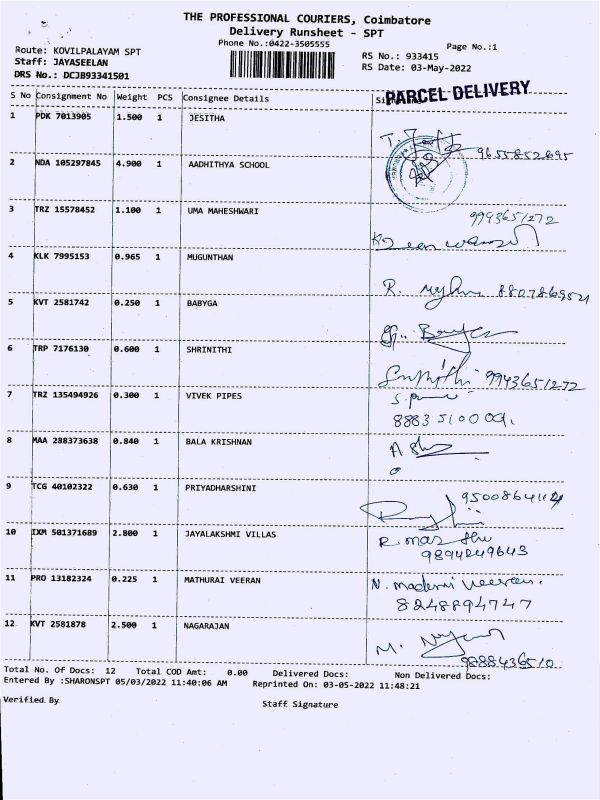 THE PROFESSIONAL COURIERS, Coimbatore
Delivery Runsheet - SPT
Phone No.:0422-3505555
Page No.:1
Route: KOVILPALAYAM SPT
Staff: JAYASEELAN
DRS No.: DCJB93341501
RS No.: 933415
RS Date: 03-May-2022
PARCEL DELIVERY
S No Consignment No Weight PCS Consignee Details
1 PDK 7013905 1.500 1 JESITHA
9655852695
2 NDA 105297845 4.900 1 AADHITHYA SCHOOL
3 TRZ 15578452 1.100 1 UMA MAHESHWARI 9943651272
4 KLK 7995153 0.965 1 MUGUNTHAN
R. 8807869521
5 KVT 2581742 0.250 1 BABYGA
6 TRP 7176130 0.600 1 SHRINITHI
9943651272
7 TRZ 135494926 0.300 1 VIVEK PIPES
8 MAA 288373638 0.840 1 BALA KRISHNAN
9 TCG 40102322 0.630 1 PRIYADHARSHINI
10 IXM 501371689 2.800 1 JAYALAKSHMI VILLAS
9894249643
11 PRO 13182324 0.225 1 MATHURAI VEERAN
8248894747
12 KVT 2581878 2.500 1 NAGARAJAN
M.
9888436510
Total No. Of Docs: 12 Total COD Amt: 0.00 Delivered Docs: Non Delivered Docs:
Entered By :SHARONSPT 05/03/2022 11:40:06 AM Reprinted On: 03-05-2022 11:48:21
Verified By
Staff Signature